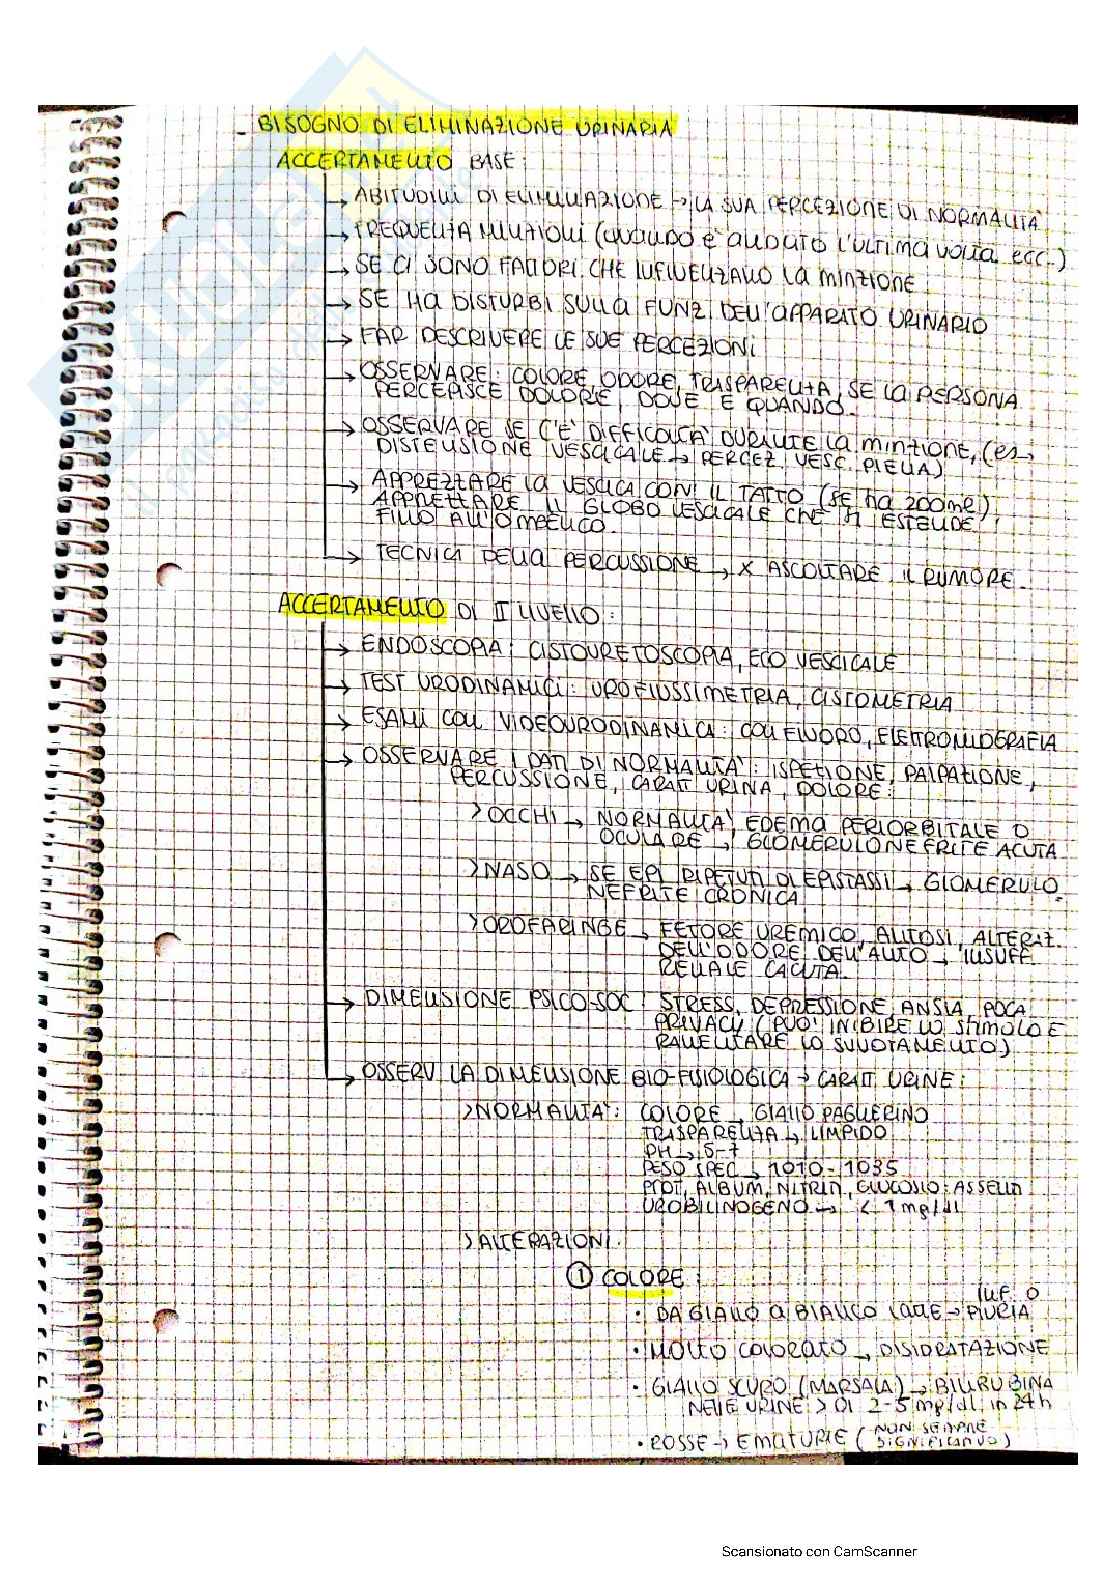 - BISOGNO DI ELIMINAZIONE URINARIA
ACCERTAMENTO BASE:
→ ABITUDINI DI ELIMINAZIONE → LA SUA PERCEZIONE DI NORMALITÀ
→ FREQUENZA MINZIONI (QUANDO È ANDATO L'ULTIMA VOLTA, ecc..)
→ SE CI SONO FATTORI CHE INFLUENZANO LA MINZIONE
→ SE HA DISTURBI SULLA FUNZ. DELL'APPARATO URINARIO
→ FAR DESCRIVERE LE SUE PERCEZIONI
→ OSSERVARE: COLORE, ODORE, TRASPARENZA, SE LA PERSONA
PERCEPISCE DOLORE, DOVE E QUANDO.
→ OSSERVARE SE C'È DIFFICOLTÀ DURANTE LA MINZIONE, (es→
DISTENSIONE VESCICALE → PERCEZ. VESC. PIENA)
→ APPREZZARE LA VESCICA CON IL TATTO (SE ha 200ml),
APPREZZARE IL GLOBO VESCICALE CHE SI ESTENDE
FINO ALL'OMBELICO.
→ TECNICA DELLA PERCUSSIONE → X ASCOLTARE IL RUMORE.
ACCERTAMENTO DI II LIVELLO:
→ ENDOSCOPIA: CISTOURETOSCOPIA, ECO VESCICALE
→ TEST URODINAMICI: UROFLUSSIMETRIA, CISTOMETRIA
→ ESAMI CON VIDEOURODINAMICA: CON FLUORO, ELETTROMIOGRAFIA
→ OSSERVARE I DATI DI NORMALITÀ: ISPEZIONE, PALPAZIONE,
PERCUSSIONE, CARATT URINA, DOLORE:
> OCCHI → NORMALITÀ, EDEMA PERIORBITALE O
OCULARE → GLOMERULONEFRITE ACUTA
> NASO → SE EPI. RIPETUTI DI EPISTASSI → GLOMERULO
NEFRITE CRONICA
> OROFARINGE → FETORE UREMICO, ALITOSI, ALTERAZ.
DELL'ODORE DELL'ALITO → INSUFF.
RENALE CACUTA.
→ DIMENSIONE PSICO-SOC: STRESS, DEPRESSIONE, ANSIA, POCA
PRIVACY (PUÒ INIBIRE LO STIMOLO E
RALLENTARE LO SVUOTAMENTO)
→ OSSERV LA DIMENSIONE BIO-FISIOLOGICA → CARATT URINE:
> NORMALITÀ: COLORE → GIALLO PAGLIERINO
TRASPARENZA → LIMPIDO
PH → 5-7
PESO SPEC → 1010-1035
PROT, ALBUM, NITRITI, GLUCOSIO: ASSENTI
UROBILINOGENO → < 1 mg/dl
> ALTERAZIONI:
① COLORE:
• DA GIALLO A BIANCO LATTE → INF. O PIURIA
• MOLTO COLORATO → DISIDRATAZIONE
• GIALLO SCURO (MARSALA) → BILIRUBINA
NELLE URINE > DI 2-5 mg/dl in 24h
• ROSSE → EMATURIE (NON SEMPRE
SIGNIFICATIVO)
Scansionato con CamScanner